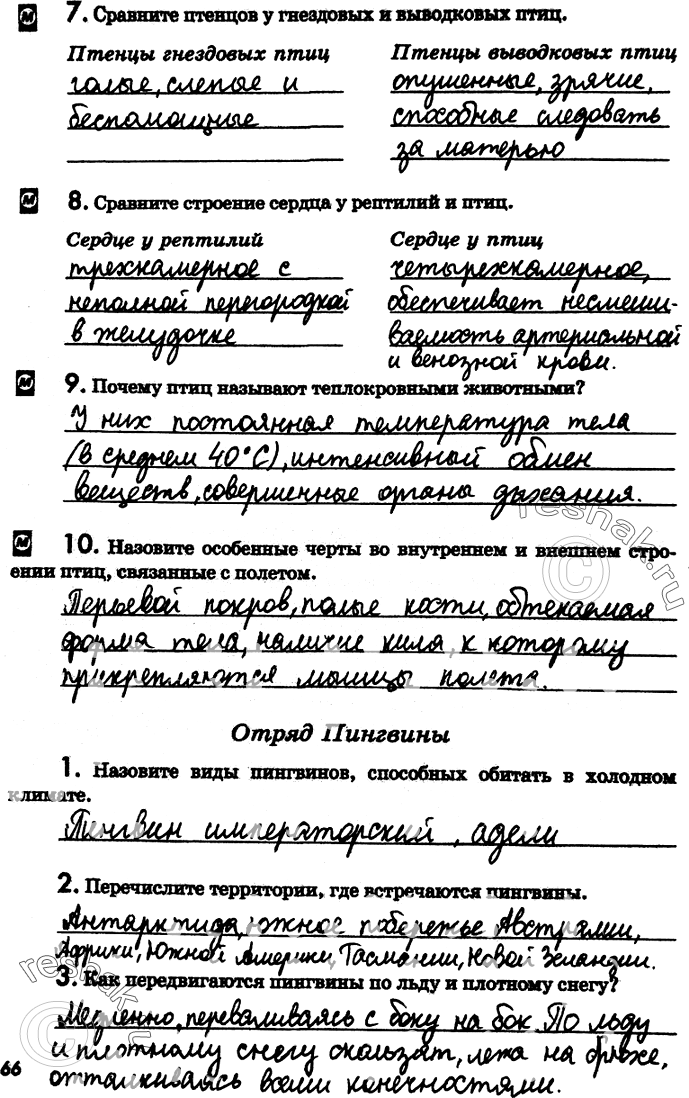 7. Сравните птенцов у гнездовых и выводковых птиц.
Птенцы гнездовых птиц
голые, слепые и
беспомощные
Птенцы выводковых птиц
опушенные, зрячие,
способные следовать
за матерью
8. Сравните строение сердца у рептилий и птиц.
Сердце у рептилий
трехкамерное с
неполной перегородкой
в желудочке
Сердце у птиц
четырехкамерное,
обеспечивает несмеши-
ваемость артериальной
и венозной крови.
9. Почему птиц называют теплокровными животными?
У них постоянная температура тела
(в среднем 40°С), интенсивный обмен
веществ, совершенные органы дыхания.
10. Назовите особенные черты во внутреннем и внешнем стро-
ении птиц, связанные с полетом.
Перьевой покров, полые кости, обтекаемая
форма тела, наличие киля, к которому
прикрепляются мышцы полета.
Отряд Пингвины
1. Назовите виды пингвинов, способных обитать в холодном
климате.
Пингвин императорский, адели
2. Перечислите территории, где встречаются пингвины.
Антарктида, южное побережье Австралии,
Африки, Южной Америки, Тасмании, Новой Зеландии.
3. Как передвигаются пингвины по льду и плотному снегу?
Медленно, переваливаясь с боку на бок. По льду
и плотному снегу скользят, лежа на брюхе,
отталкиваясь всеми конечностями.
66
resnak.ru
resnak.ru